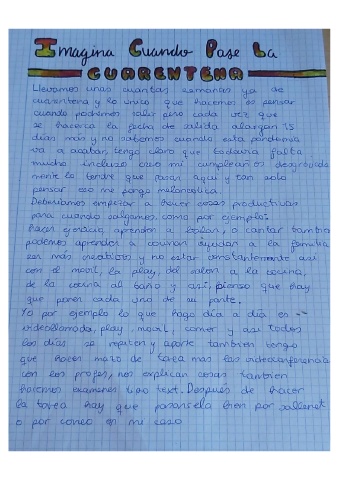 Imagina Cuando Pase La
CUARENTENA
Llevamos unas cuantas semanas ya de
cuarentena y lo único que hacemos es pensar
cuando podremos salir pero cada vez que
se hacerca la fecha de salida alargan 15
días más y no sabemos cuando esta pandemia
va a acabar, tengo claro que todavía falta
mucho incluso creo mi cumpleaños desgraciada
mente lo tendré que pasar aquí y tan solo
pensar eso me pongo melancolica.
Deberíamos empezar a hacer cosas productivas
para cuando salgamos, como por ejemplo:
Hacer ejercicio, aprender a bailar, o cantar tambien
podemos aprender a cocinar ayudar a la familia
ser más creativos y no estar constantemente así
con el movil, la play, del salon a la cocina,
de la cocina al baño y así, pienso que hay
que poner cada uno de su parte.
Yo por ejemplo lo que hago día en
videollamada, play, movil, comer y así todos
los días se repiten y aparte tambien tengo
que hacer mazo de tarea mas las videoconferencia
con los profes, nos explican cosas tambien
hacemos examenes tipo test. Después de hacer
la tarea hay que pasarsela bien por sallenet
o por correo en mi caso